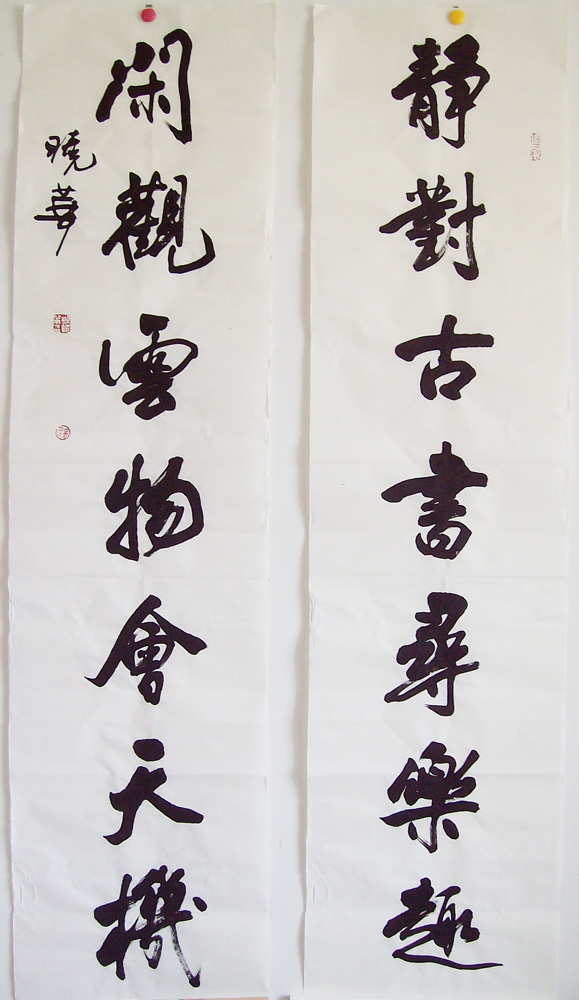 靜對古書尋樂趣
閑觀雲物會天機
曉華